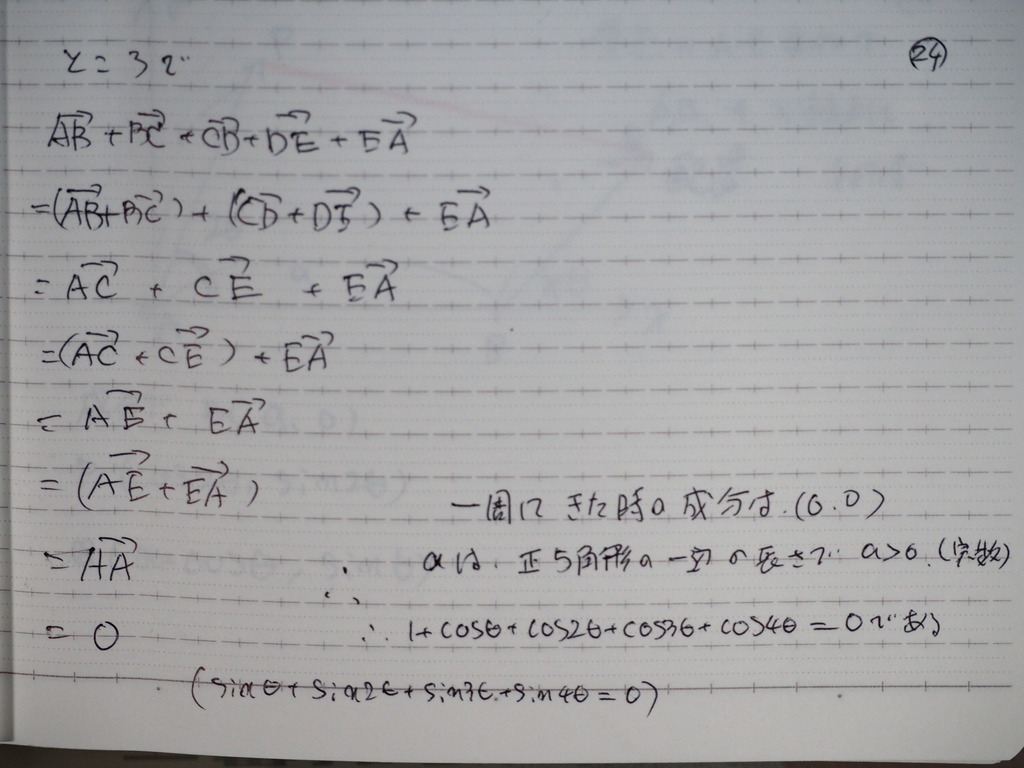 ㉔
AB→ + BC→ + CB→ + DE→ + EA→
= (AB→ + BC→) + (CD→ + DE→) + EA→
= AC→ + CE→ + EA→
= (AC→ + CE→) + EA→
= AE→ + EA→
= (AE→ + EA→)
一周してきた時の成分は、(0.0)
= AA→
aは、正5角形の一辺の長さで a>0.(定数)
= 0
∴ 1+cosθ+cos2θ+cos3θ+cos4θ=0である
(sinθ+sin2θ+sin3θ+sin4θ=0)